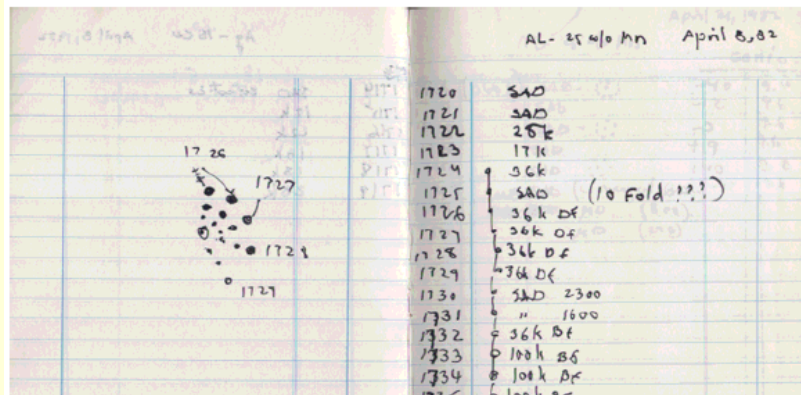 1726
1727
1728
1729
AL-25 w/o Mn April 8, 82
1720 SAD
1721 SAD
1722 25k
1723 17k
1724 36k
1725 SAD (10 Fold ???)
1726 36k Df
1727 36k Df
1728 36k Df
1729 36k Df
1730 SAD 2300
1731 " 1600
1732 36k Bf
1733 100k Bf
1734 100k Bf
100k Bf